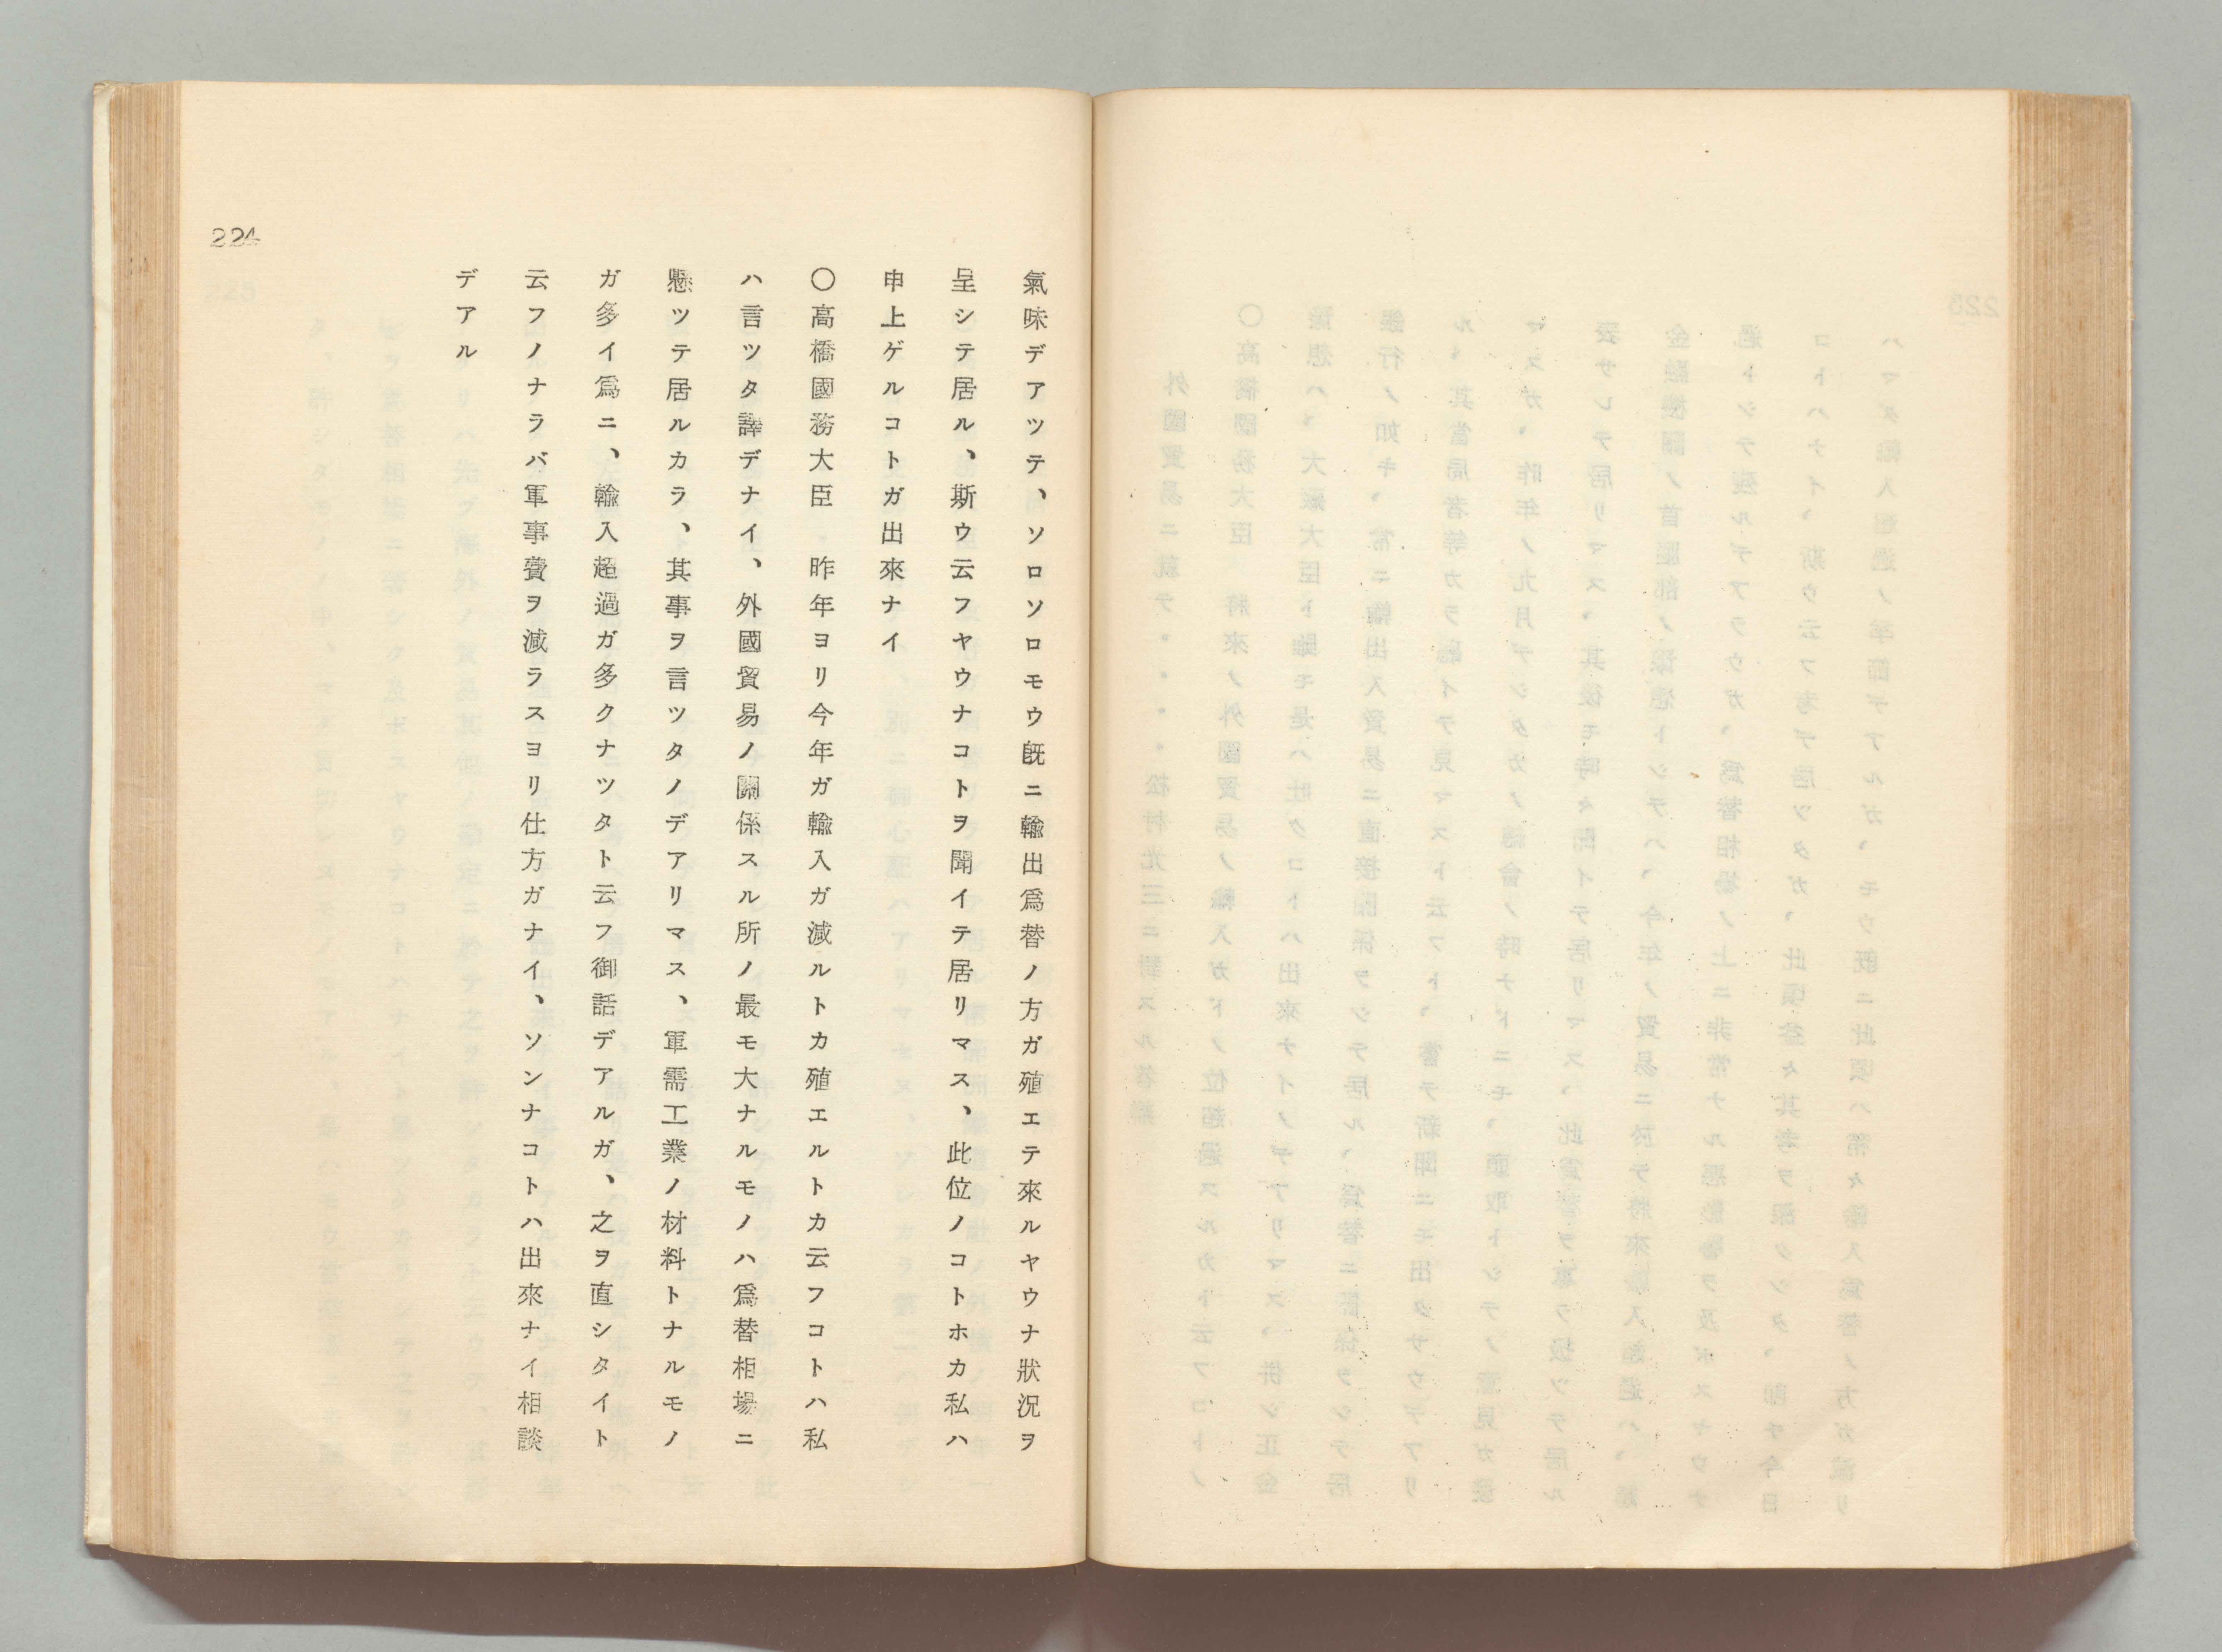 氣味デアツテ、ソロソロモウ既ニ輸出爲替ノ方ガ殖エテ來ルヤウナ狀況ヲ
呈シテ居ル、斯ウ云フヤウナコトヲ聞イテ居リマス、此位ノコトホカ私ハ
申上ゲルコトガ出來ナイ
〇高橋國務大臣 昨年ヨリ今年ガ輸入ガ減ルトカ殖エルトカ云フコトハ私
ハ言ツタ譯デナイ、外國貿易ノ關係スル所ノ最モ大ナルモノハ爲替相場ニ
懸ツテ居ルカラ、其事ヲ言ツタノデアリマス、軍需工業ノ材料トナルモノ
ガ多イ爲ニ、輸入超過ガ多クナツタト云フ御話デアルガ、之ヲ直シタイト
云フノナラバ軍事費ヲ減ラスヨリ仕方ガナイ、ソンナコトハ出來ナイ相談
デアル
224